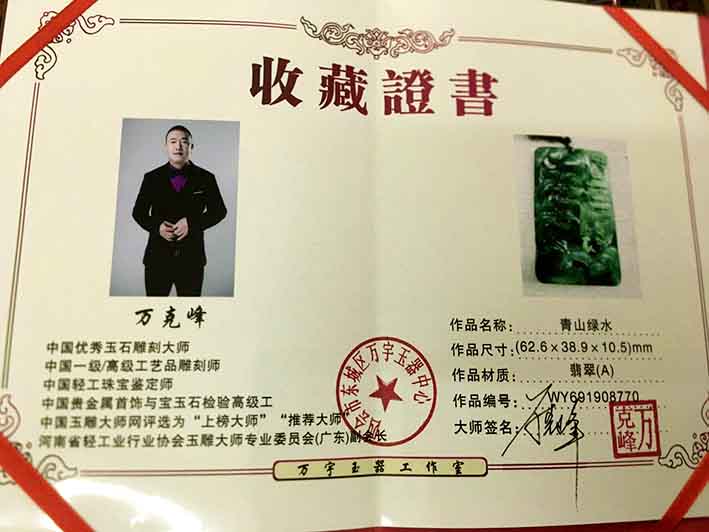 收藏證書
万克峰
中国优秀玉石雕刻大师
中国一级/高级工艺品雕刻师
中国轻工珠宝鉴定师
中国贵金属首饰与宝玉石检验高级工
中国玉雕大师网评选为“上榜大师”“推荐大师”
河南省轻工业行业协会玉雕大师专业委员会(广东)副会长
四会市东城区万宇玉器中心
作品名称: 青山绿水
作品尺寸: (62.6×38.9×10.5)mm
作品材质: 翡翠(A)
作品编号: WY691908770
大师签名:
万克峰
万宇玉器工作室